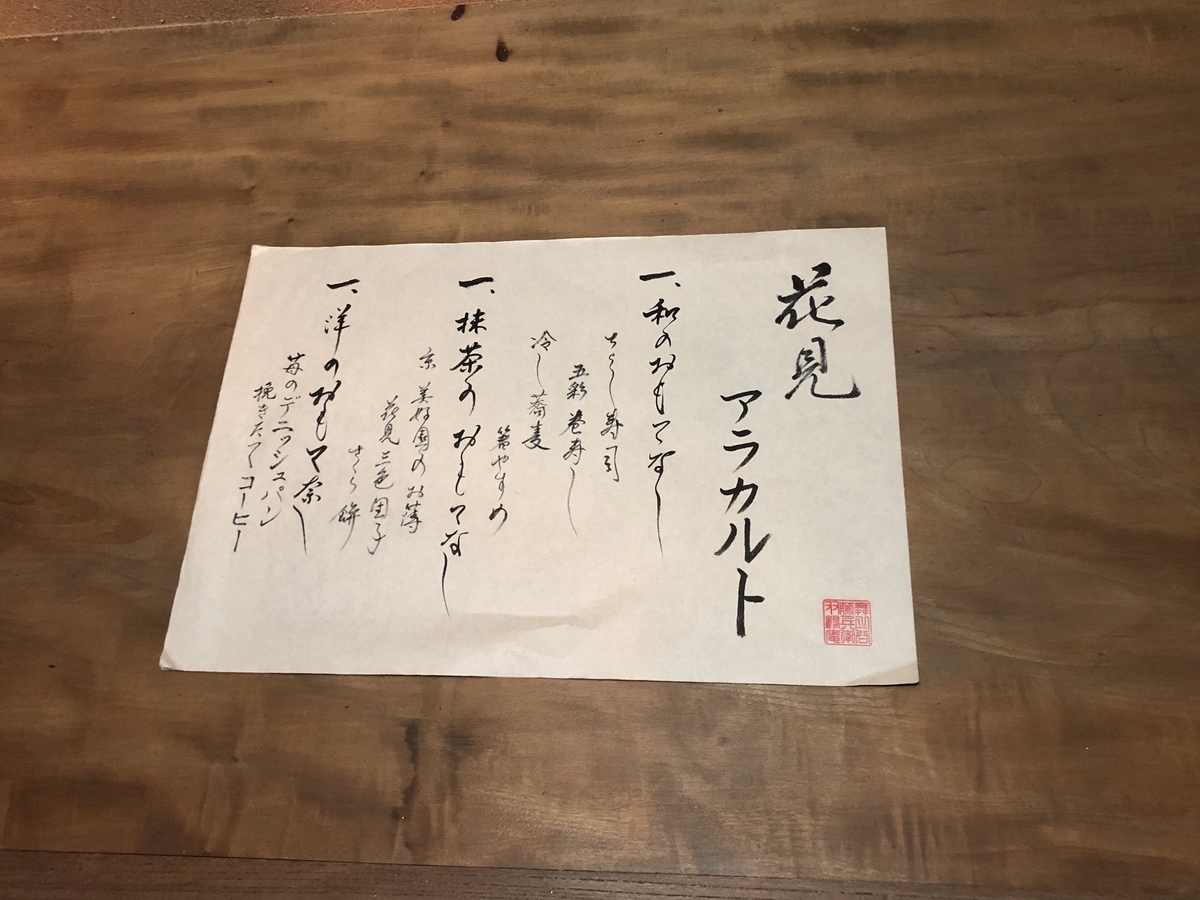 花見
アラカルト
一、和のおもてなし
ちらし寿司
五彩巻寿し
冷し蕎麦
一、抹茶のおもてなし
箸やすめ
京 美好園のお薄
花見三色団子
さくら餅
一、洋のおもて奈し
苺のデニッシュパン
挽きたてコーヒー